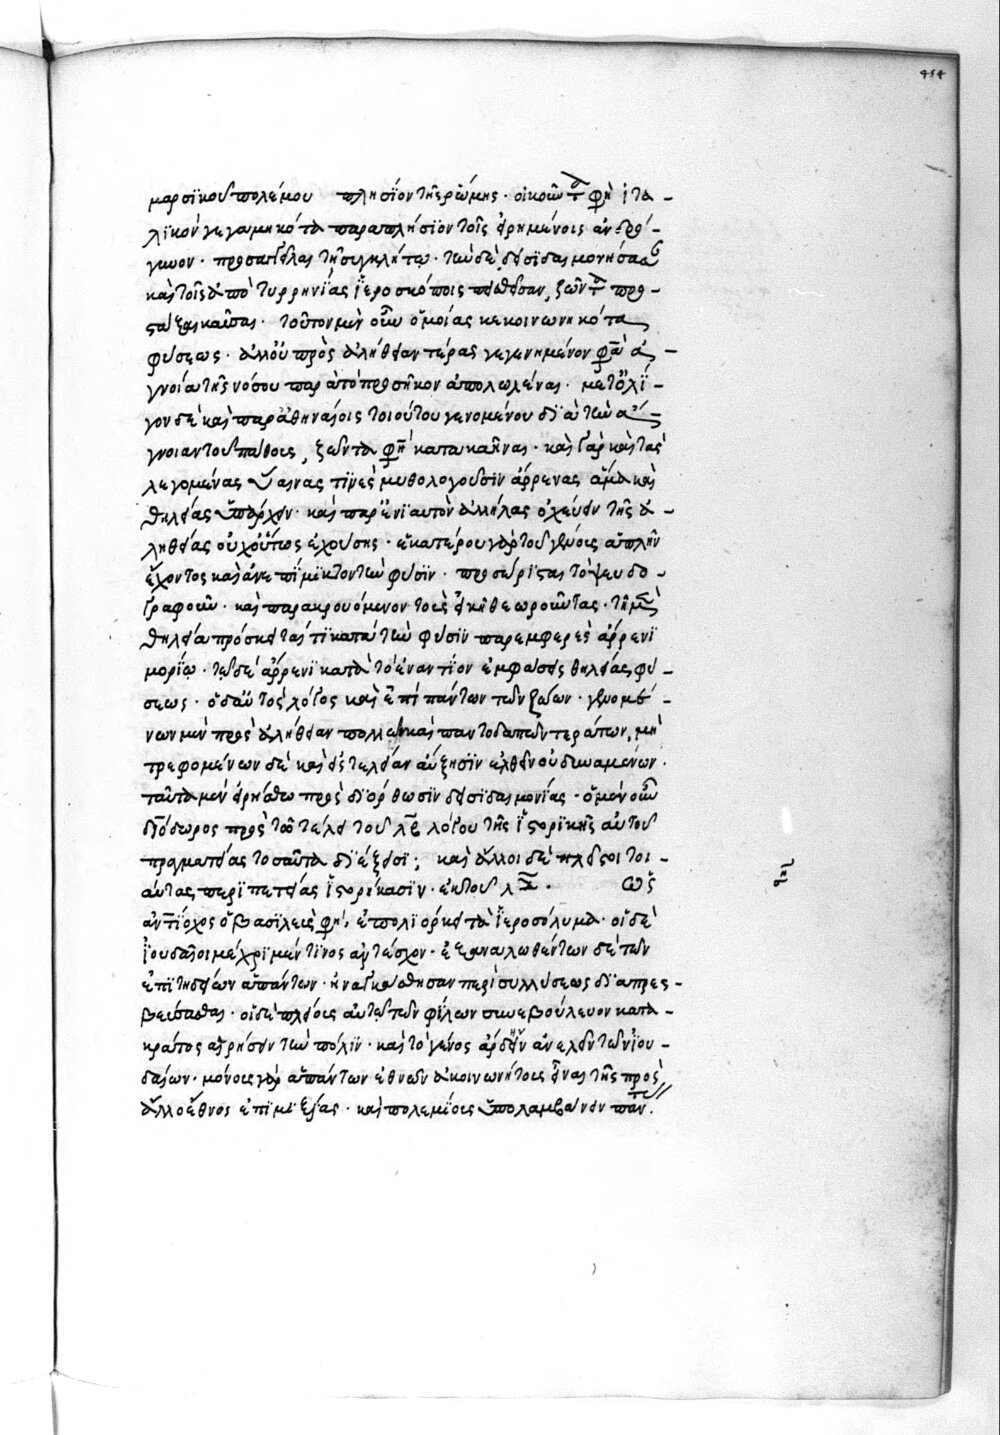 454
μαρσϊκοῦ πολέμου πλησίον τῆς ῥώμης · οἰκοῦντά φησὶν ἰτα-
λϊκὸν γεγαμηκότα παραπλήσϊον τοῖς εἰρημένοις ἀνδρό-
γυνον · προσαγγεῖλαι τῇ συγκλήτῳ · τὴν δὲ δεισϊδαιμονήσασαν
καὶ τοῖς ἀπὸ τυρρηνΐας ἱεροσκόποις πεισθεῖσαν, ζῶντα προσ-
τάξαι καῦσαι · τοῦτον μὲν οὖν ὁμοίας κεκοινωνηκότα
φύσεως · ἀλλ' οὐ πρὸς ἀλήθειαν τέρας γεγενημένον φασὶν ἀ-
γνοίᾳ τῆς νόσου παρὰ τὸ προσῆκον ἀπολωλέναι · μετ' ὀλί-
γον δὲ καὶ παρ' ἀθηναίοις τοιούτου γενομένου δϊὰ τὴν ἄ-
γνοιαν τοῦ πάθους, ζῶντά φησὶ κατακαῆναι · καὶ γὰρ καὶ τὰς
λεγομένας ὑαίνας τϊνὲς μυθολογοῦσϊν ἄρρενας ἅμα καὶ
θηλείας ὑπάρχειν · καὶ παρ' ἐνϊαυτὸν ἀλλήλας ὀχεύειν τῆς ἀ-
ληθείας οὐχ οὕτως ἐχούσης · ἑκατέρου γὰρ τοῦ γένους ἁπλῆν
ἔχοντος καὶ ἀνεπίμϊκτον τὴν φύσϊν · προσώρϊσται τὸ ψευδο-
γραφοῦν · καὶ παρακρουόμενον τοὺς εἰκῇ θεωροῦντας · τῇ μὲν
θηλείᾳ πρόσκειταί τϊ κατὰ τὴν φύσϊν παρεμφερὲς ἄρρενϊ
μορίῳ · τῷ δὲ ἄρρενϊ κατὰ τὸ ἐναντίον ἔμφασις θηλείας φύ-
σεως · ὁ δ' αὐτὸς λόγος καὶ ἐπὶ πάντων τῶν ζώων · γενομέ-
νων μὲν πρὸς ἀλήθειαν πολλῶν καὶ παντοδαπῶν τεράτων, μὴ
τρεφομένων δὲ καὶ εἰς τελείαν αὔξησϊν ἐλθεῖν οὐ δυναμένων ·
ταῦτα μὲν εἰρήσθω πρὸς δϊόρθωσϊν δεισϊδαιμονίας · ὁ μὲν οὖν
δϊόδωρος πρὸς τῷ τέλει τοῦ λβ λόγου τῆς ἱστορϊκῆς αὐτοῦ
πραγματείας τοσαῦτα δϊέξεισϊ; καὶ ἄλλοι δὲ πλεῖστοι τοι-
αύτας περϊπετείας ἱστορήκασϊν · ἐκ τοῦ λδ · ὡς
ἀντίοχος ὁ βασϊλεὺς φησὶ, ἐπολϊόρκει τὰ ἱεροσόλυμα · οἱ δὲ
ἰουδαῖοι μέχρϊ μέν τϊνος ἀντέσχον · ἐξαναλωθέντων δὲ τῶν
ἐπϊτηδείων ἁπάντων · ἠναγκάσθησαν περὶ συλλύσεως δϊαπρεσ-
βεύσασθαι · οἱ δὲ πλείους αὐτῷ τῶν φίλων συνεβούλευον κατὰ
κράτος αἱρήσειν τὴν πόλϊν · καὶ τὸ γένος ἄρδην ἀνελεῖν τῶν ἰου-
δαίων · μόνους γὰρ ἁπάντων ἐθνῶν ἀκοινωνήτους εἶναι τῆς πρὸς
ἄλλο ἔθνος ἐπϊμϊξίας · καὶ πολεμίους ὑπολαμβάνειν πάντας